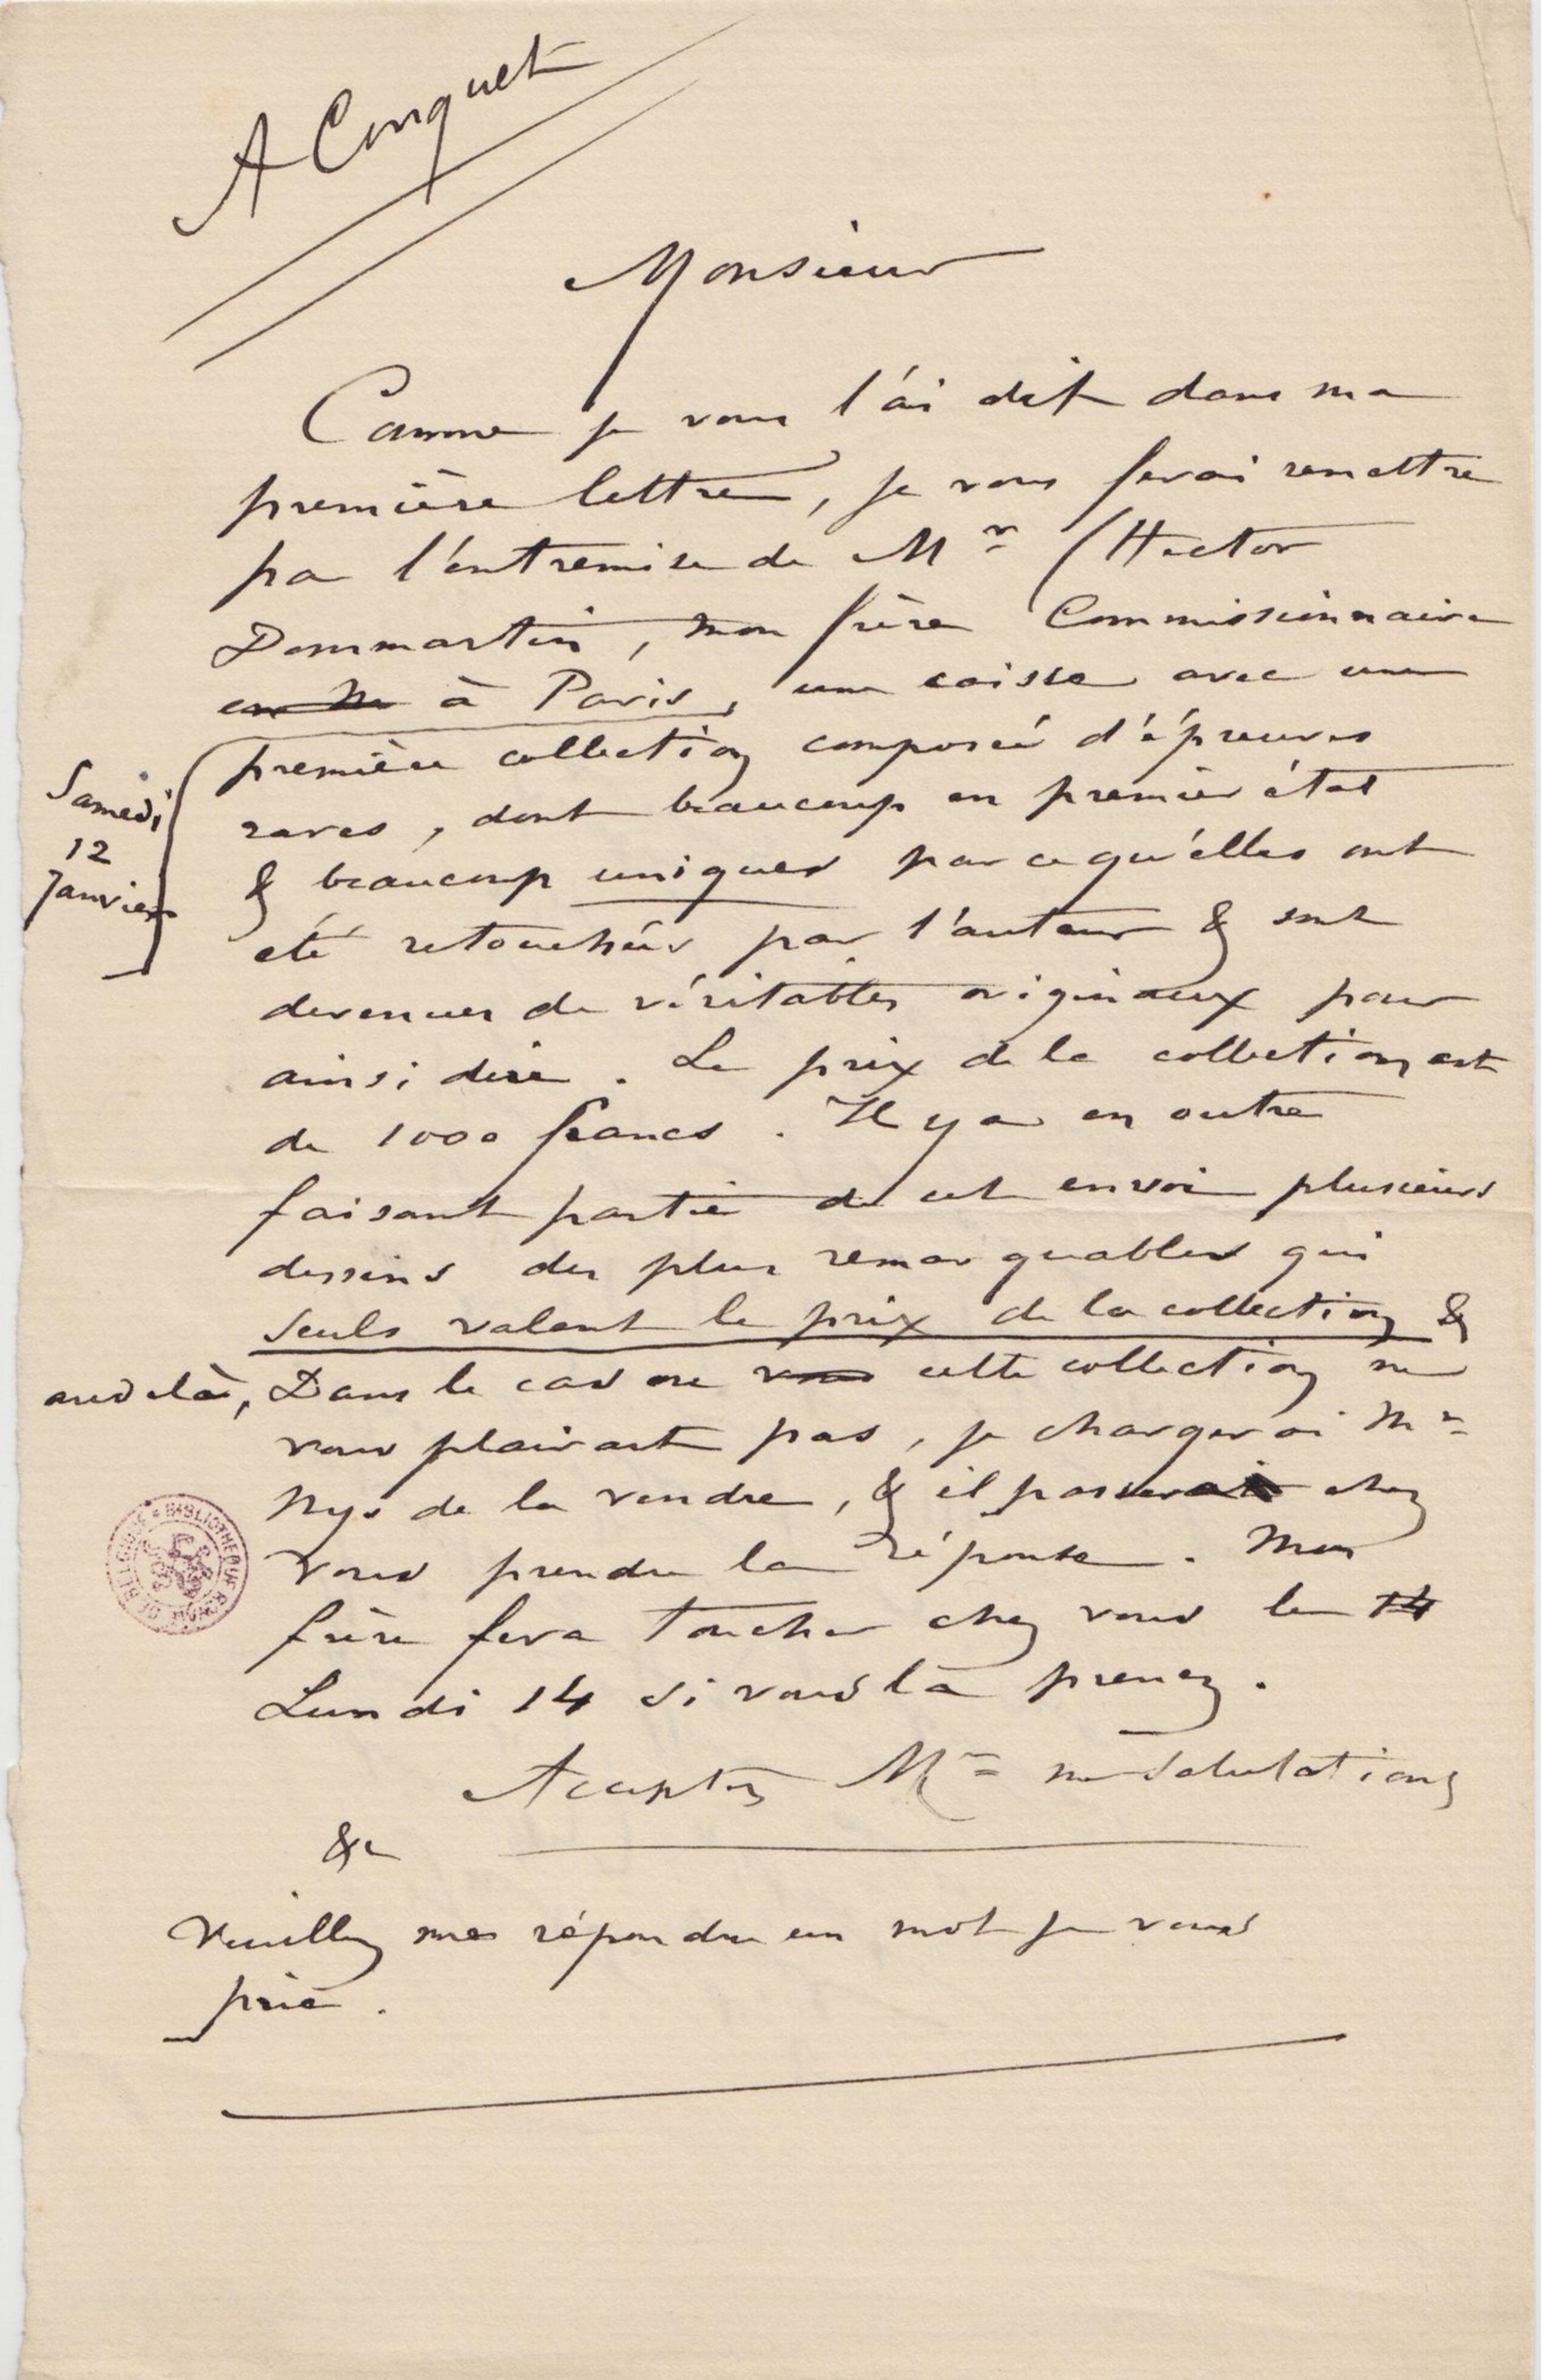 A Conquet
Monsieur
Comme je vous l'ai dit dans ma
première lettre, je vous ferai remettre
par l'entremise de Mr Hector
Dommartin, mon frère Commissionnaire
à Paris, une caisse avec une
première collection composée d'épreuves
Samedi
12
Janvier
rares, dont beaucoup en premier état
& beaucoup uniques parce qu'elles ont
été retouchées par l'auteur & sont
devenues de véritables originaux pour
ainsi dire. Le prix de la collection est
de 1000 francs. Il y a en outre
faisant partie de cet envoi plusieurs
dessins des plus remarquables qui
seuls valent le prix de la collection &
au delà, Dans le cas ou vous cette collection ne
vous plairait pas, je chargerai Mr
Nys de la vendre, & il passera chez
vous prendre la réponse. Mon
frère fera toucher chez vous le 14
Lundi 14 si vous la prenez.
Acceptez Mr mes salutations
&c
Veuillez me répondre un mot je vous
prie.
BIBLIOTHEQUE ROYALE DE BELGIQUE